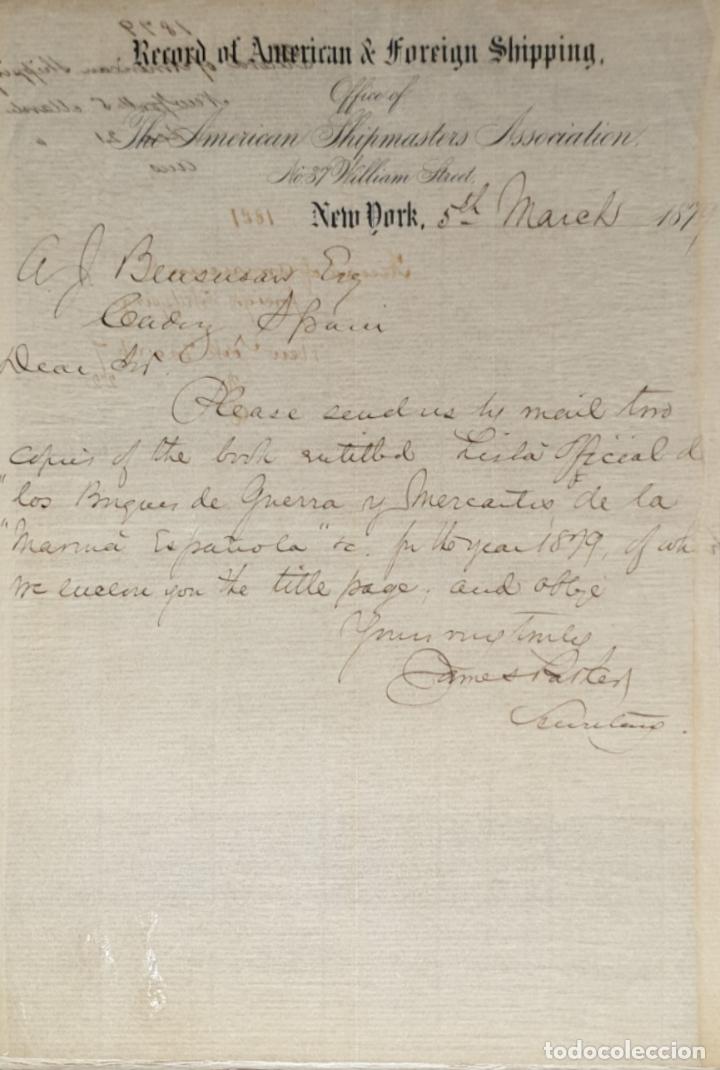 Record of American & Foreign Shipping.
Office of
The American Shipmasters Association.
No 37 William Street.
New York, 5th March 1879
A J Bensusan Esq
Cadiz, Spain
Dear Sir
Please send us by mail two
copies of the book entitled Lista Oficial d
"los Buques de Guerra y Mercantes de la
"Marina Española" &c. for the year 1879, of wh
we enclose you the title page, and oblige
Yours very truly
James Parker
Secretary.
todocoleccion